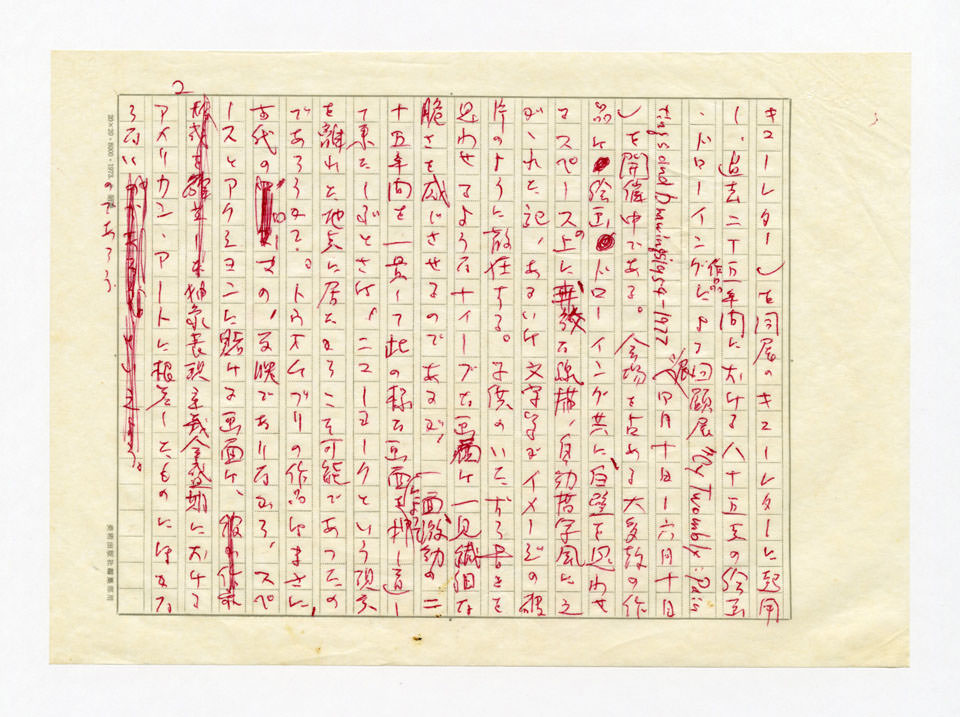 2
キューレター）を同展のキューレターに起用
し、過去二十五年間に於ける八十五点の絵画
、ドローイング作品による回顧展 "Cy Twombly: Pain
tings and Drawings 1954-1977"展（四月十日－六月十日
）を開催中である。会場を占める大多数の作
品は絵画、ドローイング共に、白壁を思わせ
るスペースの上に、無数な線描、自動描字風に
これた記、あるいは文字等がイメージの破
片のように散在する。子供のいたずら書きを
思わせるようなナイーブな画面は一見繊細な
脆さを感じさせるのであるが、一面微動の二
十五年間を一貫して此の様な画面を押し通し
て来たしぶとさは、ニューヨークという現実
を離れた地点に居たからこそ可能であったの
であろうか。トゥオムブリの作品はまさに、
古代のローマの、反映でありながら、スペ
ースとアクションに賭ける画面は、
抽象表現主義全盛期に於ける
アメリカン・アートに根差したものにほかな
らないのであろう。
20×20